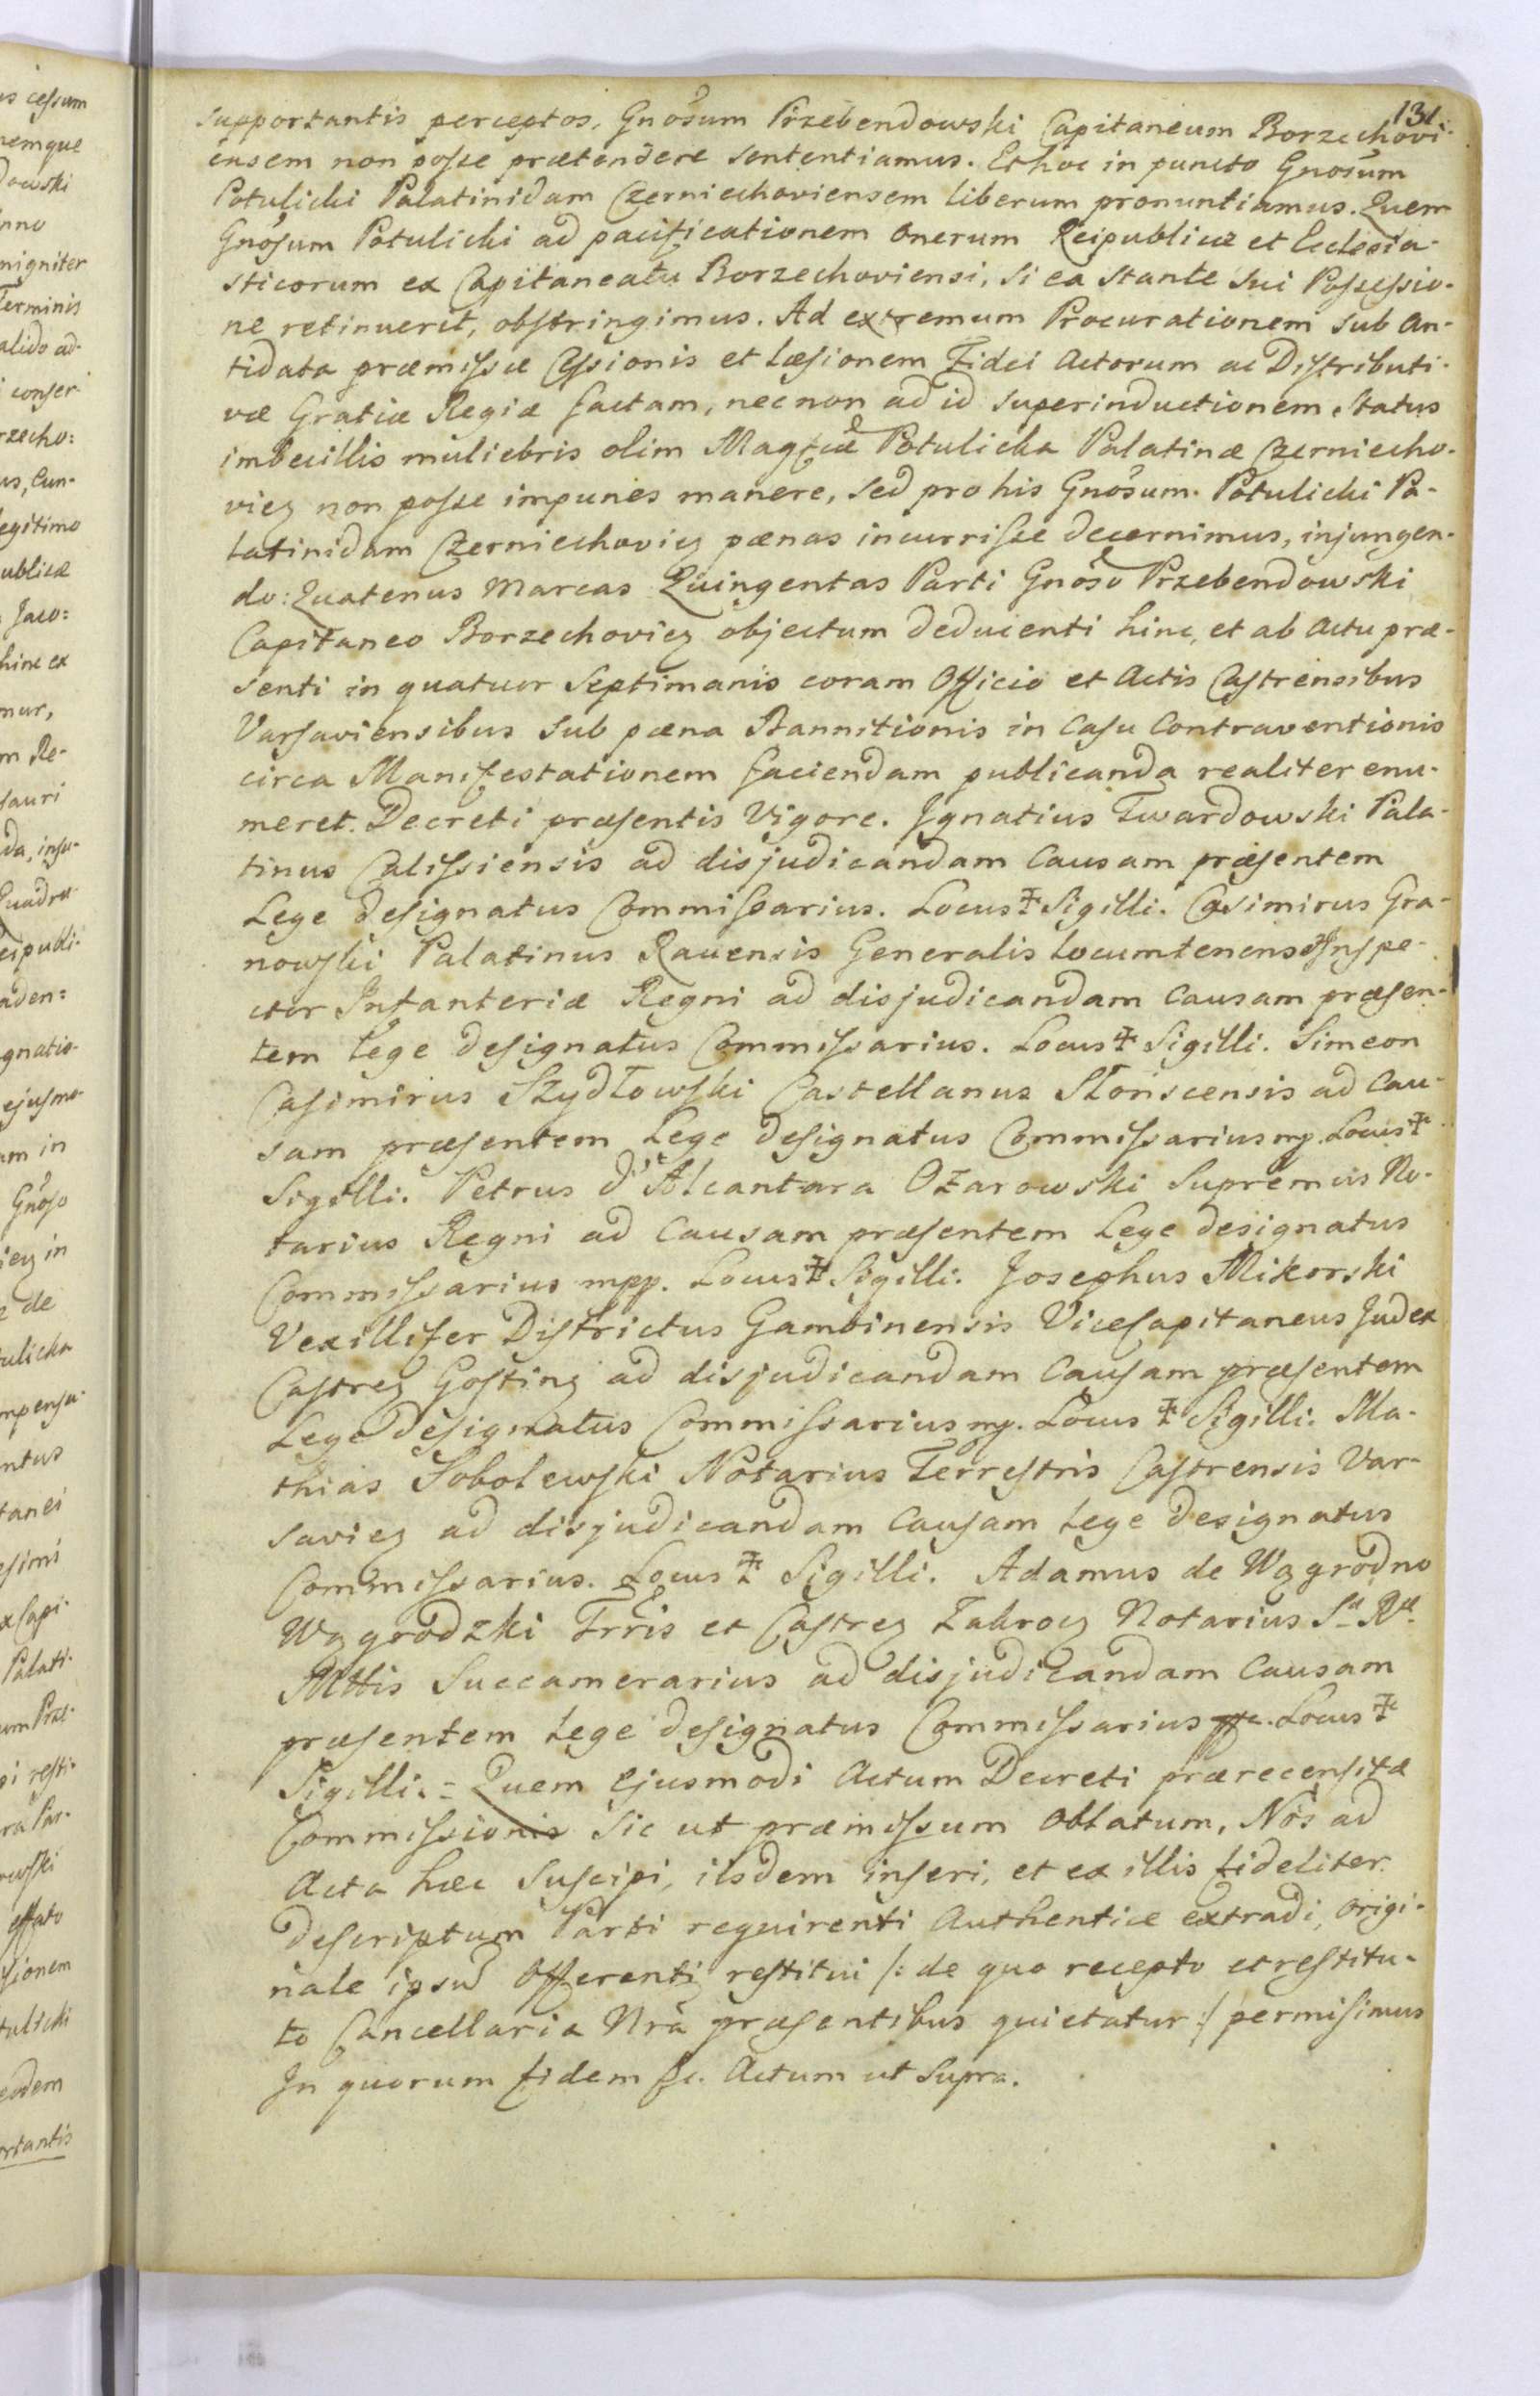 131.
supportantis perceptos, Gnosum Przebendowski Capitaneum Borzechovi-
ensem non posse prætendere sententiamus. Et hoc in puncto Gnosum
Potulicki Palatinidam Czerniechoviensem liberum pronuntiamus. Quem
Gnosum Potulicki ad pacificationem Onerum Reipublicæ et Ecclesia-
sticorum ex Capitaneatu Borzechoviensi, si ea stante sui Possessio-
ne retinuerit, obstringimus. Ad extremum Procurationem sub An-
tidata præmissæ Cessionis et læsionem Fidei Actorum ac Distributi-
væ Gratiæ Regiæ factam, necnon ad id superinductionem Status
imbecillis muliebris olim Magcæ Potulicka Palatinæ Czerniecho-
vieƺ non posse impunes manere, sed pro his Gnosum. Potulicki Pa-
latinidam Czerniechovieƺ pænas incurrisse decernimus, injungen-
do: Quatenus Marcas Quingentas Parti Gnoso Przebendowski
Capitaneo Borzechovieƺ objectum deducenti hinc, et ab Actu præ-
senti in quatuor Septimanis coram Officio et Actis Castrensibus
Varsaviensibus sub pæna Bannitionis in Casu Contraventionis
circa Manifestationem faciendam publicanda realiter enu-
meret. Decreti præsentis Vigore. Ignatius Twardowski Pala-
tinus Calissiensis ad disjudicandam Causam præsentem
Lege designatus Commissarius. Locus ‡ Sigilli. Casimirus Gra-
nowski Palatinus Ravensis Generalis locumtenens Inspe-
ctor Infanteriæ Regni ad disjudicandam Causam præsen-
tem Lege designatus Commissarius. Locus ‡ Sigilli. Simeon
Casimirus Szydłowski Castellanus Słonscensis ad Cau-
sam præsentem Lege designatus Commissarius mp. Locus ‡
Sigilli. Petrus d'Alcantara Ożarowski Supremus No-
tarius Regni ad Causam præsentem Lege designatus
Commissarius mpp. Locus ‡ Sigilli. Josephus Mikorski
Vexillifer Districtus Gambinensis Vicecapitaneus Judex
Castreƺ Gostinƺ ad disjudicandam Causam præsentem
Lege designatus Commissarius mp. Locus ‡ Sigilli. Ma-
thias Sobolewski Notarius Terrestris Castrensis Var-
savieƺ ad disjudicandam Causam Lege designatus
Commissarius. Locus ‡ Sigilli. Adamus de Wggrodno
Wggrodzki Trris et Castreƺ Zakrocƺ Notarius Sæ Ræ
Mttis Succamerarius ad disjudicandam Causam
præsentem Lege designatus Commissarius Locus ‡
Sigilli. = Quem Ejusmodi Actum Decreti prærecensitæ
Commissionis sic ut præmissum Oblatum, Nos ad
Acta hæc Suscipi, iisdem inseri, et ex illis fideliter
descriptum Parti requirenti Authentice extradi, origi-
nale ipsud Offerenti restitui /: de quo recepto et restitu-
to Cancellaria Nra præsentibus quietatur :/ permisimus
In quorum fidem &c. Actum ut supra.